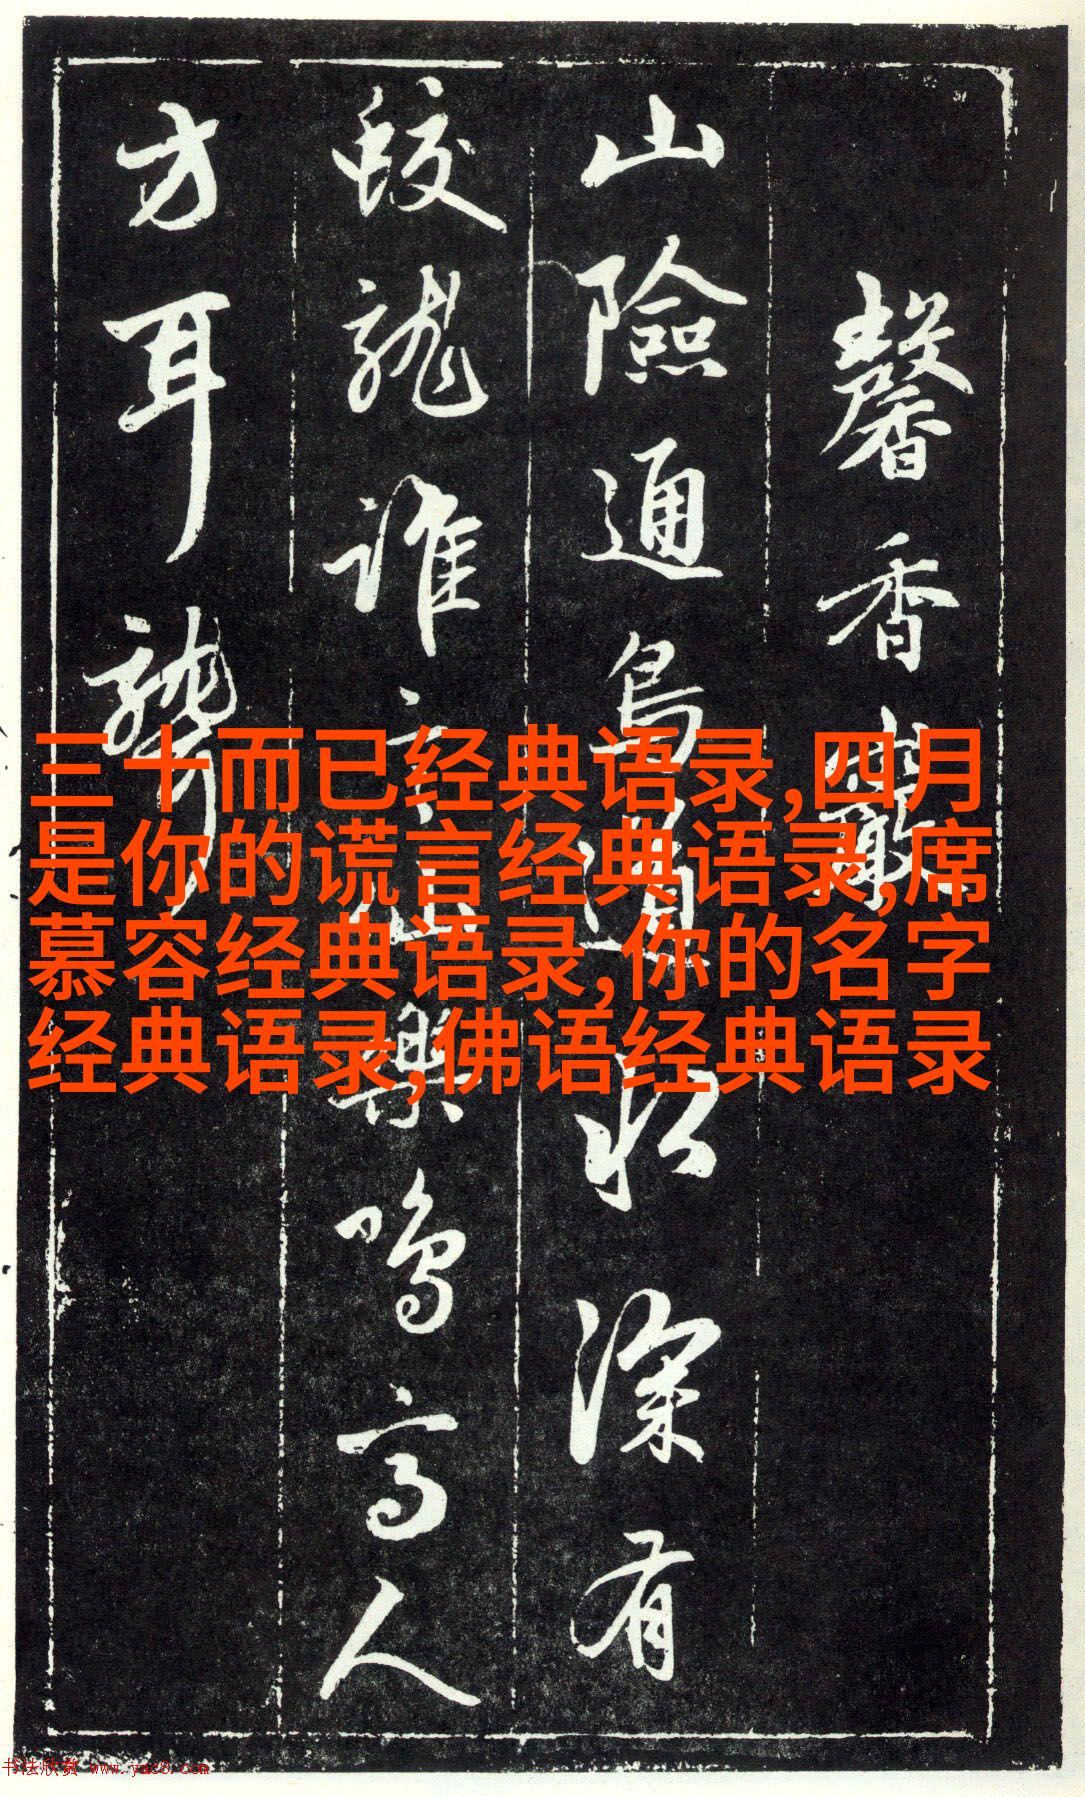 馨香
山險通鳥道水深有
蛟龍誰言樂鳴高人
方耳聾
三十而已经典语录,四月
是你的谎言经典语录,席
慕容经典语录,你的名字
经典语录,佛语经典语录
书法欣赏 www.yac8.com